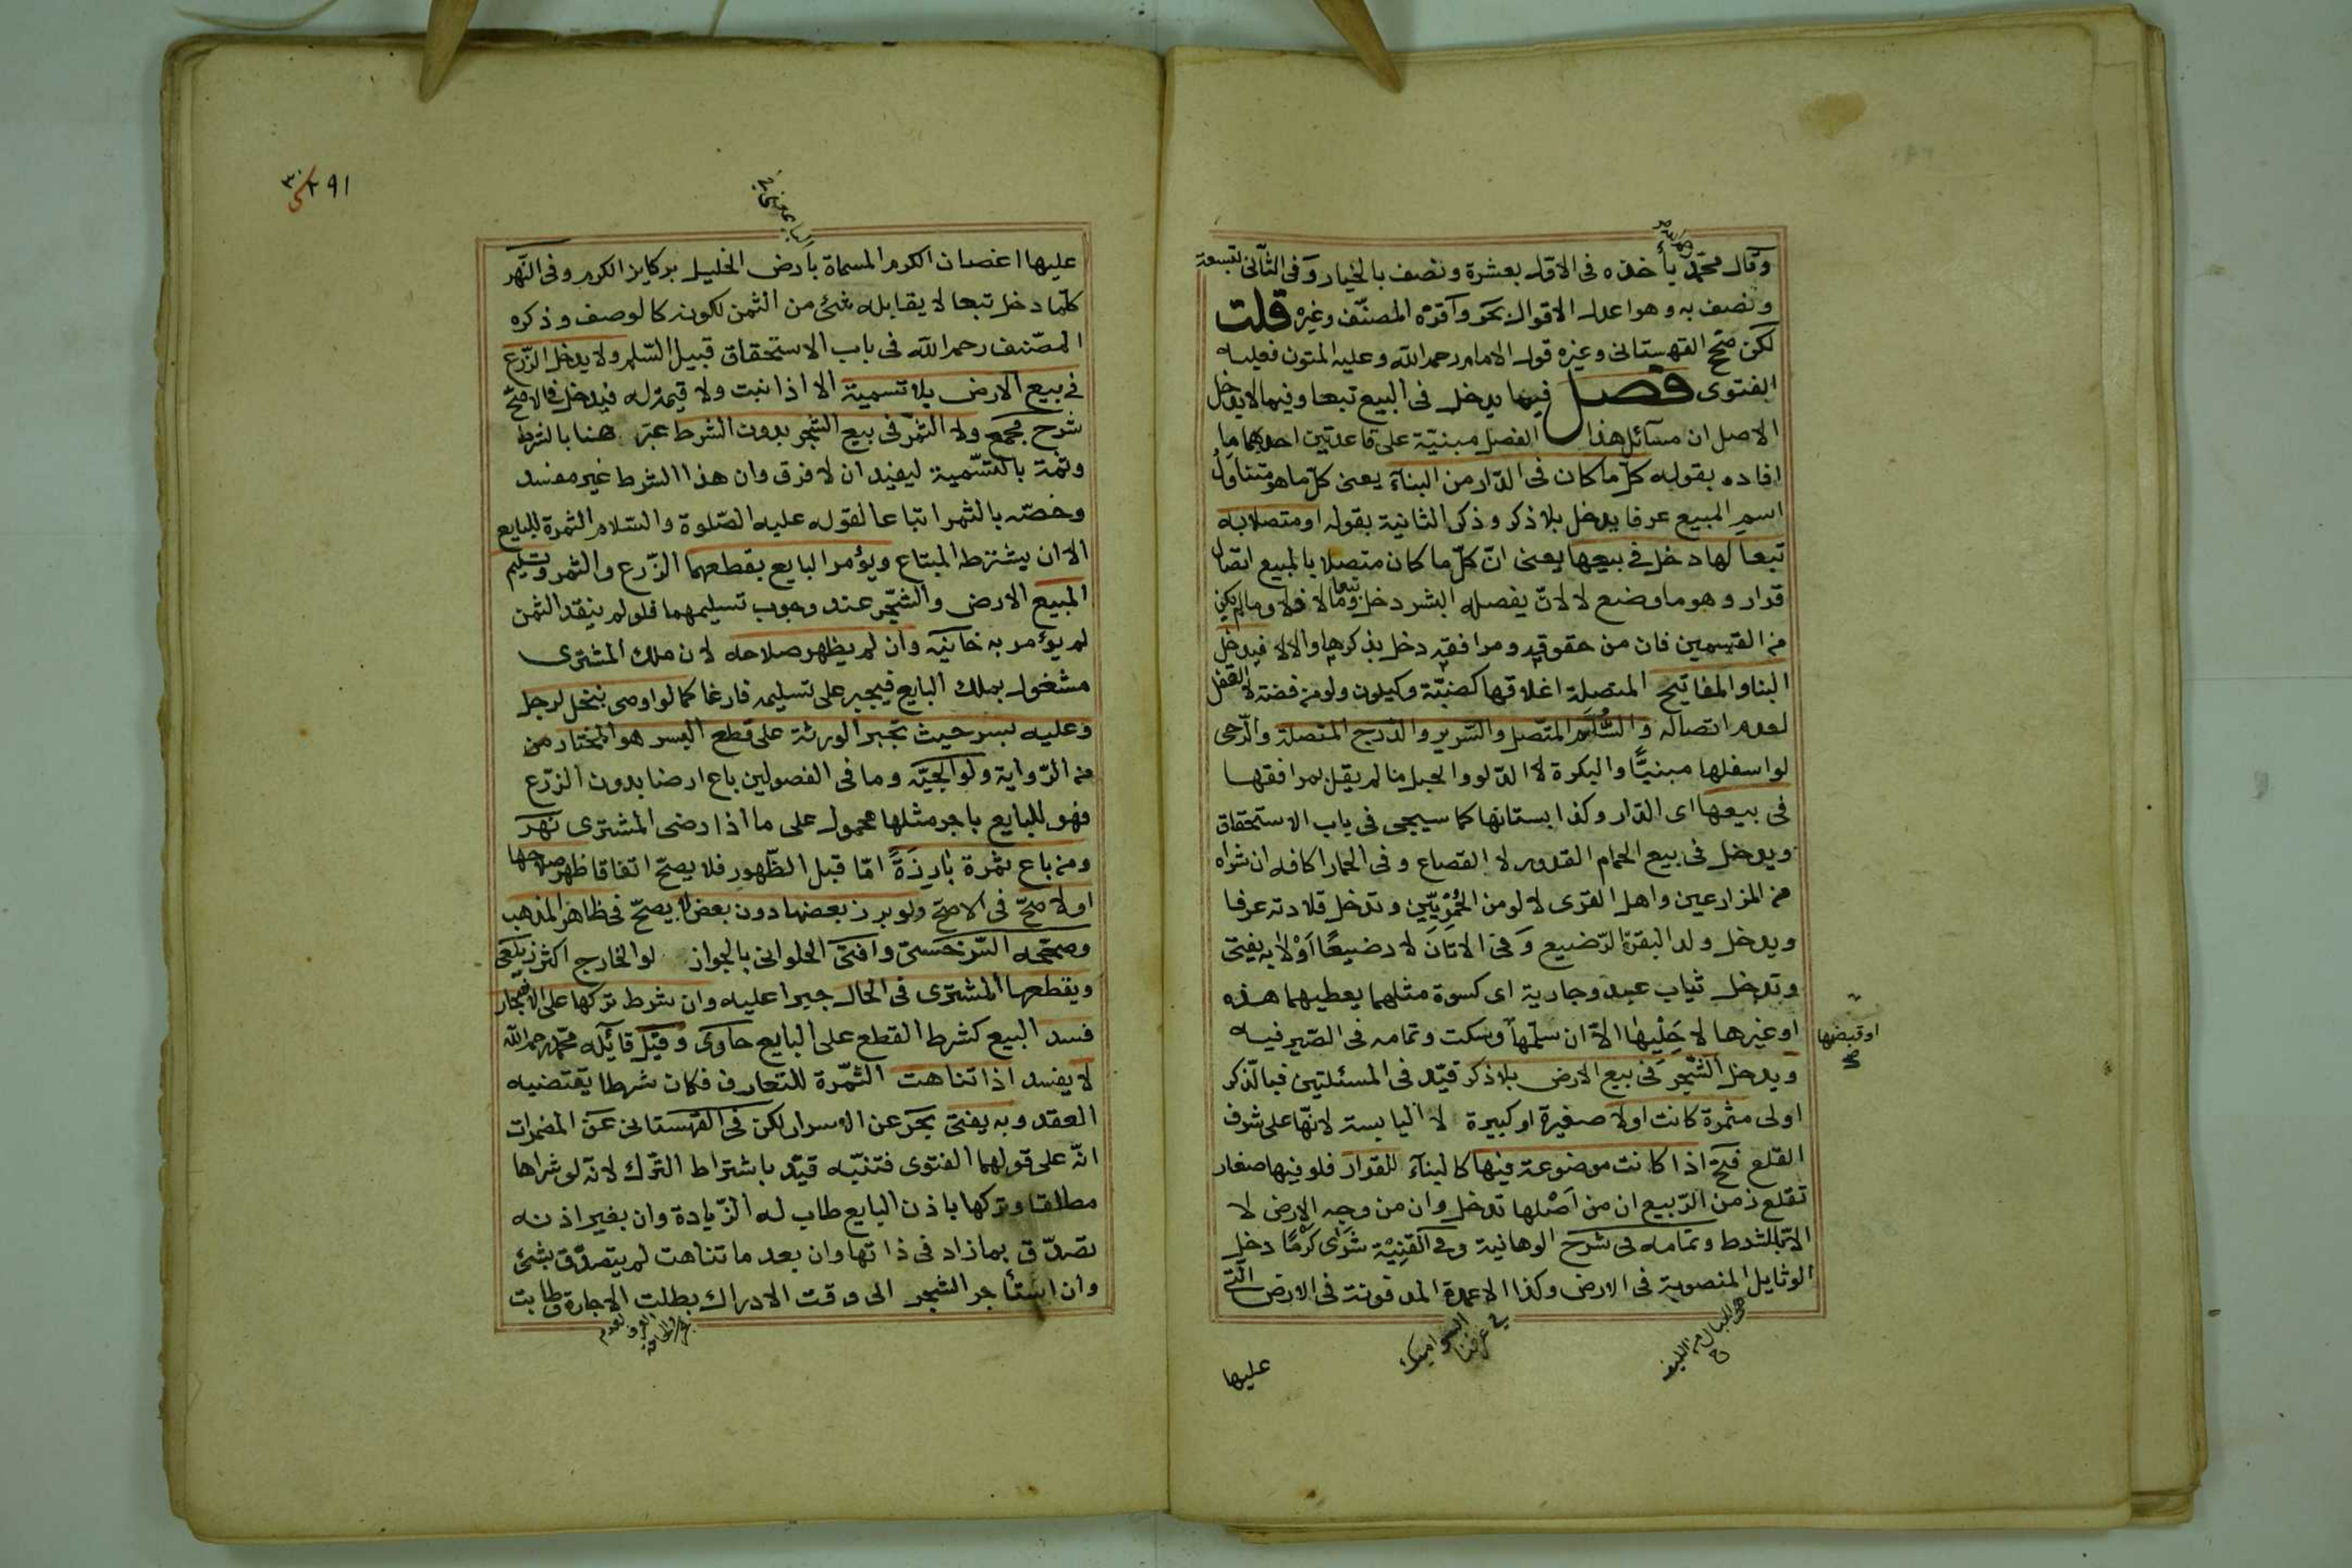 وقال محمّد يأخذه فى الاول بعشرة ونصف بالخيار وفى الثانى بتسعة
ونصف به وهو اعدل الاقوال بحر واقره المصنّف وغيره قلت
لكن صحح القهستانى وغيره قول الامام رحمه الله وعليه المتون فعليه
الفتوى فصل فيما يدخل فى البيع تبعا وفيما لا يدخل
الاصل ان مسائل هذا الفصل مبنيّة على قاعدتين احدهما ما
افاده بقوله كلّ ما كان فى الدّار من البنآء يعنى كلّ ما هو متناول
اسم المبيع عرفا يدخل بلا ذكر وذكر الثانية بقوله او متصلا به
تبعا لها دخل فى بيعها يعنى انّ كلّ ما كان متصلا بالمبيع اتصال
قرار وهو ما وضع لا لانّ يفصله البشر دخل تبعا وما لا فلا وما لم يكن
من القسمين فان من حقوقه ومرافقه دخل بذكرها والا لا فيدخل
البنا والمفاتيح المتصلة اغلاقها كضبّة وكيلون ولو من فضة لا القفل
لعدم اتصاله والسُّلّم المتّصل والسّرير والدّرج المتصلة والرّحى
لو اسفلها مبنيًّا والبكرة لا الدّلو والحبل ما لم يقل بمرافقها
فى بيعها اى الدّار وكذا بستانها كما سيجى فى باب الاستحقاق
ويدخل فى بيع الحمام القدور لا القصاع وفى الحمار اكافه ان شراه
من المزارعين واهل القرى لا لو من الحُمُريّين وتدخل قلادته عرفا
ويدخل ولد البقرة الرّضيع وفى الاتان لا رضيعًا اوْ لا به يفتى
وتدخل ثياب عبد وجارية اى كسوة مثلهما يعطيهما هذه
او غيرها لا حَلْيها الاّ ان سلّمها وسكت وتمامه فى الصّيرفيه
او قبضها
صح
ويدخل الشّجر فى بيع الارض بلا ذكر قيّد فى المسئلتين فبالذّكر
اولى مثمرة كانت اولا صغيرة او كبيرة لا اليابسة لانّها على شرف
القلع فتح اذا كانت موضوعة فيها كالبنآء للقرار فلو فيها صغار
تقلع زمن الرّبيع ان من اصْلها تدخل وان من وجه الارض لا
الاّ بالشرط وتمامه فى شرح الوهبانية وفى القنِيْة شَرَى كَرْمًا دخل
الوثايل المنصوبة فى الارض وكذا الاعمدة المدفونة فى الارض الّتى
هى الحبال من الليف ح
فى عرفنا
عليها
٢٩١
عليها اغصان الكرم المسماة بارض الخليل بركايز الكرم وفى النّهر
كلّما دخل تبعا لا يقابله شئ من الثمن لكونه كالوصف وذكره
المصّنف رحمه الله فى باب الاستحقاق قبيل السّلم ولا يدخل الزّرع
فى بيع الارض بلا تسمية الا اذا نبت ولا قيمة له فيدخل فى الاصحّ
شرح مجمع ولا الثّمر فى بيع الشّجر بدون الشرط عبّر هنا بالشرط
وثمة بالتّسمية ليفيد ان لا فرق وان هذا الشرط غير مفسد
وخصّه بالثمر اتباعا لقوله عليه الصّلوة والسّلام الثمرة للبايع
الاّ ان يشترط المبتاع ويؤمر البايع بقطعهما الزّرع والثمر وتسليم
المبيع الارض والشّجر عند وجوب تسليمهما فلو لم ينقد الثمن
لم يؤمر به خانيّه وان لم يظهر صلاحه لان ملك المشترى
مشغول بملك البايع فيجبر على تسليمه فارغا كما لو اوصى بنخل لرجل
وعليه بسر حيث تجبر الورثة على قطع البسر هو المختار من
من الرّواية ولوالجيّه وما فى الفصولين باع ارضا بدون الزّرع
فهو للبايع باجر مثلها محمول على ما اذا رضى المشترى نهر
ومن باع ثمرة بارزةً امّا قبل الظّهور فلا يصحّ اتفاقا ظهر صلاحها
اولا صحّ فى الاصحّ ولو برز بعضها دون بعض لا يصحّ فى ظاهر المذهب
وصحّحه السّرخسى وافتى الحلوانى بالجواز لو الخارج اكثر زيلعى
ويقطعها المشترى فى الحال جبرا عليه وان شرط تركها على الاشجار
فسد البيع كشرط القطع على البايع حاوى وقيل قايله محمّد رحمه الله
لا يفسد اذا تناهت الثّمرة للتعارف فكان شرطا يقتضيه
العقد وبه يفتى بحر عن الاسرار لكن فى القهستانى عن المضمرات
انّه على قولهما الفتوى فتنبّه قيّد باشتراط التّرك لانّه لو شراها
مطلقا وتركها باذن البايع طاب له الزّيادة وان بغير اذنه
تصدّق بما زاد فى ذاتها وان بعد ما تناهت لم يتصدّق بشئ
وان استأجر الشجر الى وقت الادراك بطلت الاجارة وطابت